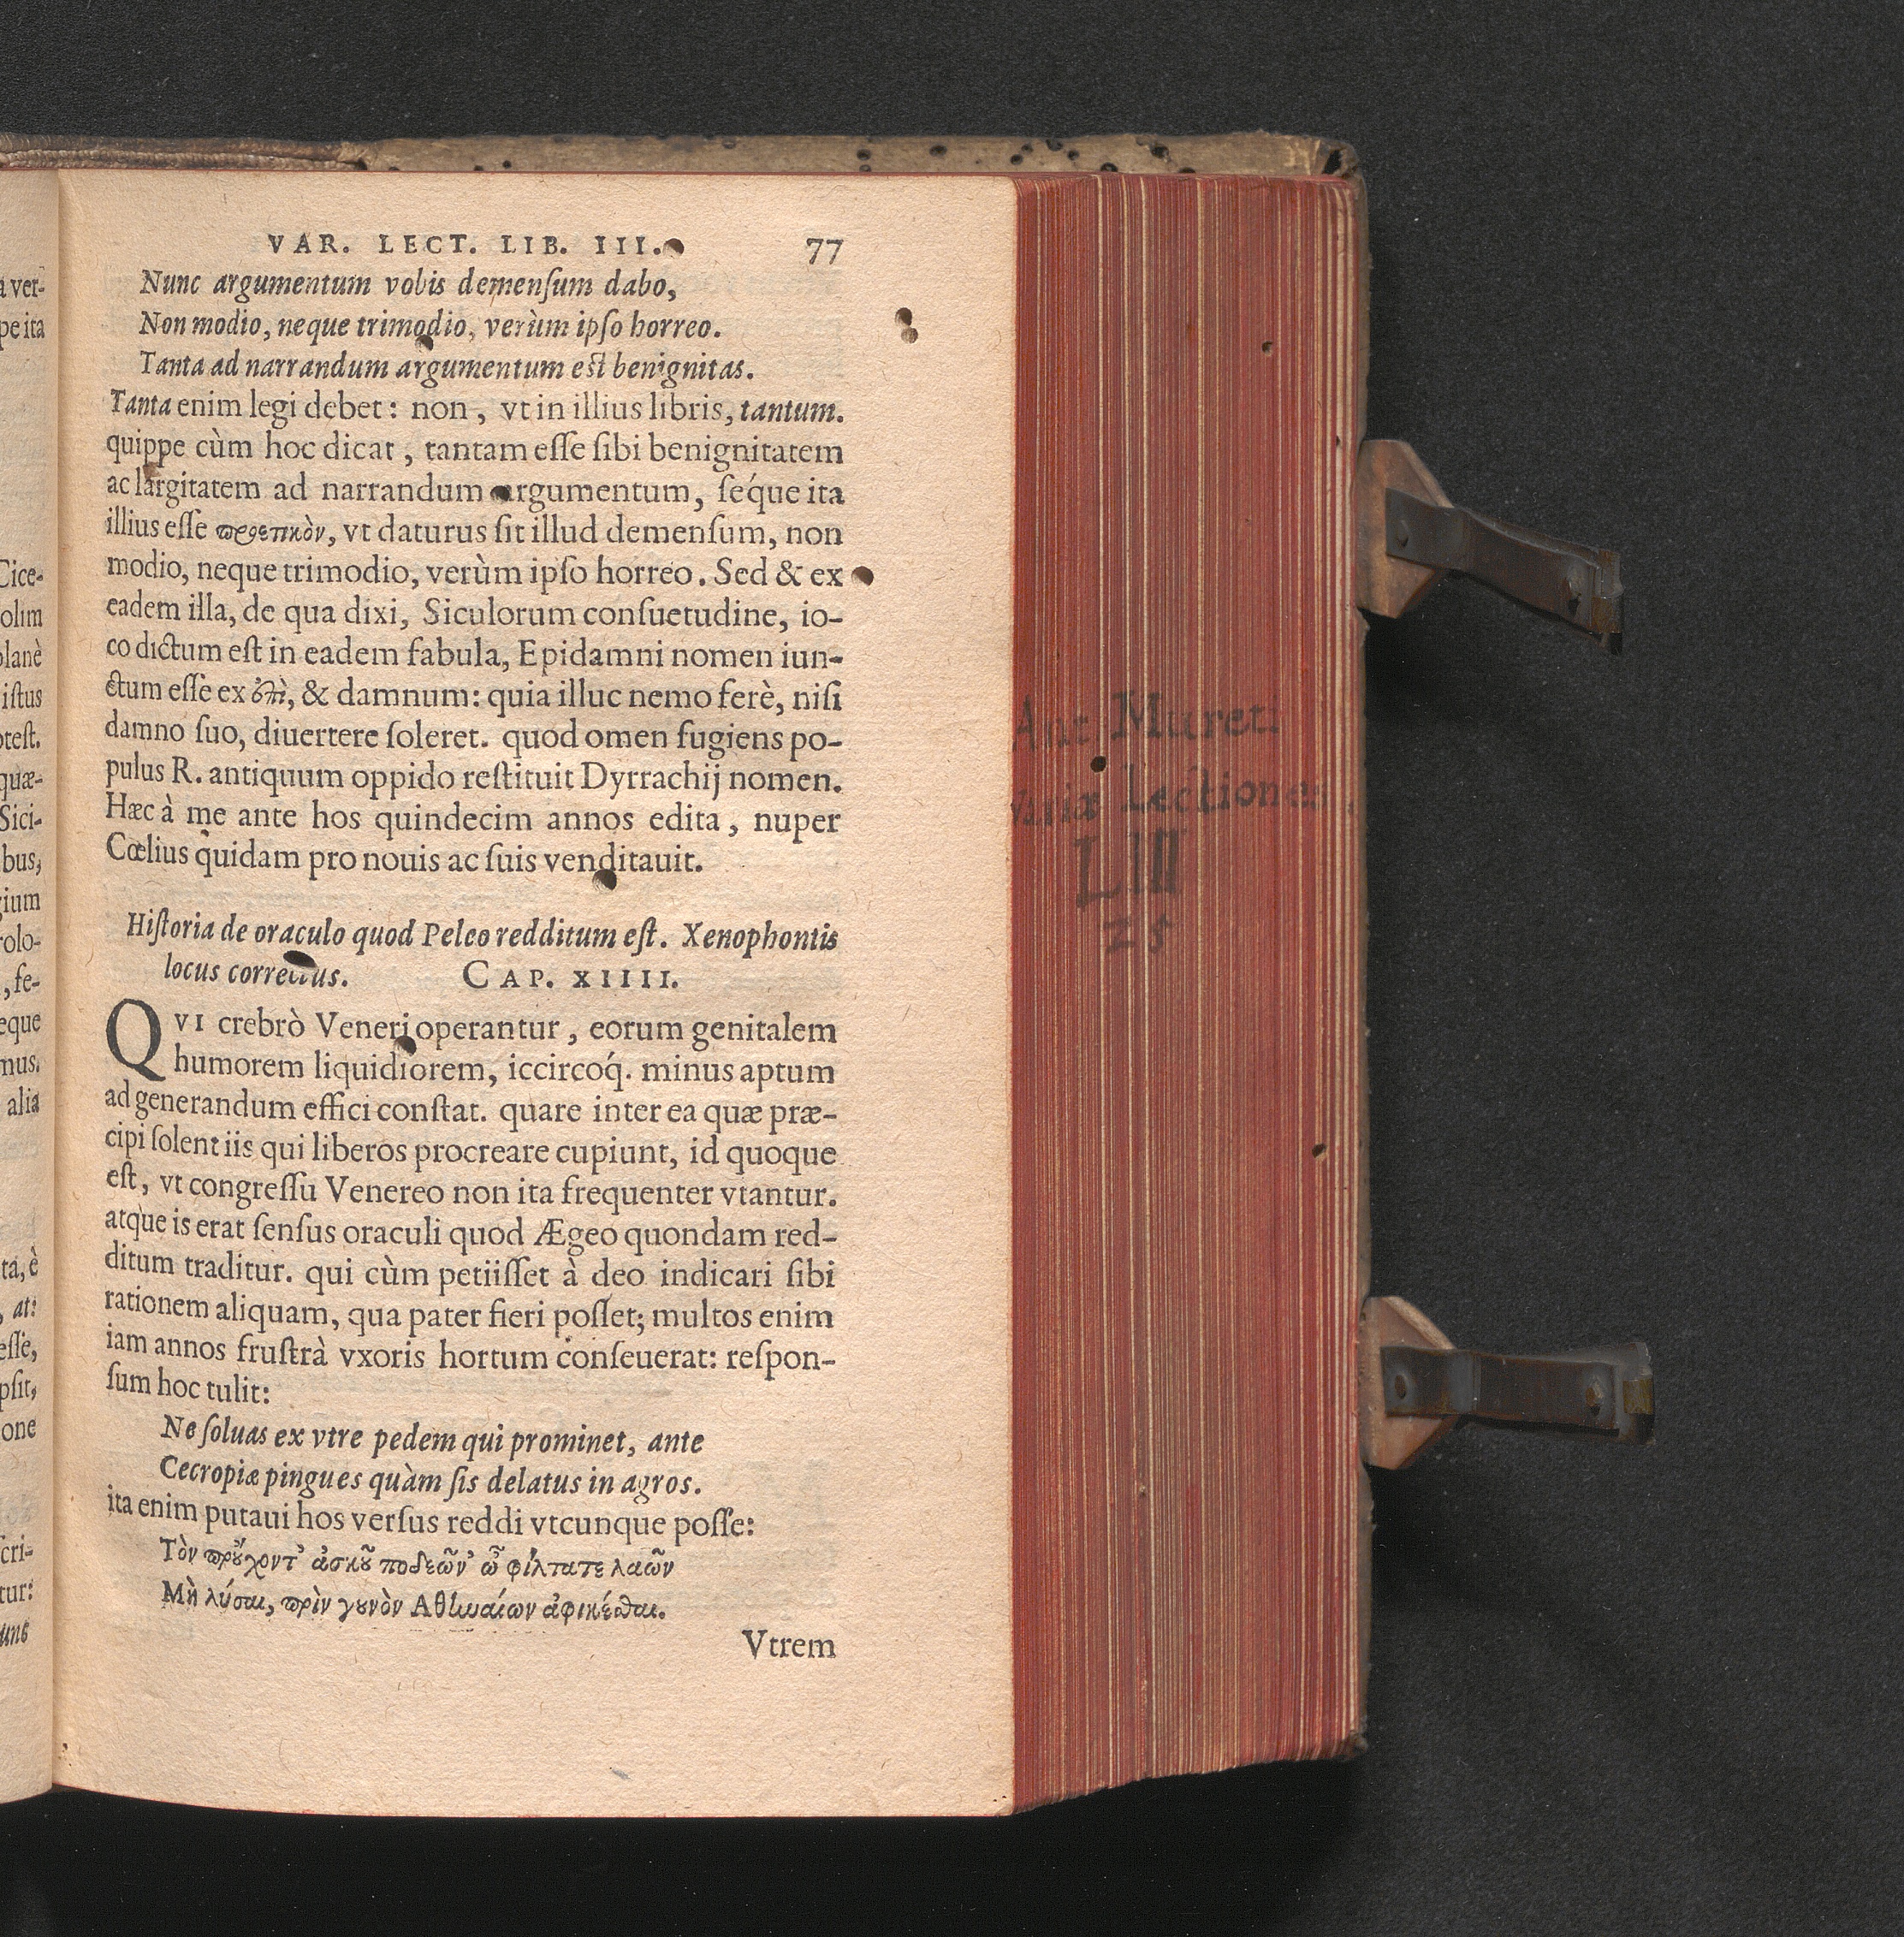 VAR. LECT. LIB. III. 77
Nunc argumentum vobis demenſum dabo,
Non modio, neque trimodio, verùm ipſo horreo.
Tanta ad narrandum argumentum eſt benignitas.
Tanta enim legi debet: non, vt in illius libris, tantum.
quippe cùm hoc dicat, tantam eſſe ſibi benignitatem
ac largitatem ad narrandum argumentum, ſeq́ue ita
illius eſſe προετικὸν, vt daturus ſit illud demenſum, non
modio, neque trimodio, verùm ipſo horreo. Sed & ex
eadem illa, de qua dixi, Siculorum conſuetudine, io-
co dictum eſt in eadem fabula, Epidamni nomen iun-
ctum eſſe ex ἐπὶ, & damnum: quia illuc nemo ferè, niſi
damno ſuo, diuertere ſoleret. quod omen fugiens po-
pulus R. antiquum oppido reſtituit Dyrrachij nomen.
Hæc à me ante hos quindecim annos edita, nuper
Cœlius quidam pro nouis ac ſuis venditauit.
Hiſtoria de oraculo quod Peleo redditum eſt. Xenophontis
locus correctus. CAP. XIIII.
QVI crebrò Veneri operantur, eorum genitalem
humorem liquidiorem, iccircoq́. minus aptum
ad generandum effici conſtat. quare inter ea quæ præ-
cipi ſolent iis qui liberos procreare cupiunt, id quoque
eſt, vt congreſſu Venereo non ita frequenter vtantur.
atque is erat ſenſus oraculi quod Ægeo quondam red-
ditum traditur. qui cùm petiiſſet à deo indicari ſibi
rationem aliquam, qua pater fieri poſſet; multos enim
iam annos fruſtrà vxoris hortum conſeuerat: reſpon-
ſum hoc tulit:
Ne ſoluas ex vtre pedem qui prominet, ante
Cecropiæ pingues quàm ſis delatus in agros.
ita enim putaui hos verſus reddi vtcunque poſſe:
Τὸν προὔχοντ' ἀσκοῦ ποδεῶν' ὦ φίλτατε λαῶν
Μὴ λύσαι, πρὶν γουνὸν Αθηναίων ἀφικέσθαι.
Vtrem
a ver-
pe ita
Cice-
olim
planè
iſtus
oteſt.
quæ-
Sici-
bus,
gium
rolo-
, ſe-
eque
mus.
alia
ta, è
, at:
eſſe,
pſit,
one
ſcri-
tur:
unc
Ant Mureti
variæ Lectiones
LIII
25